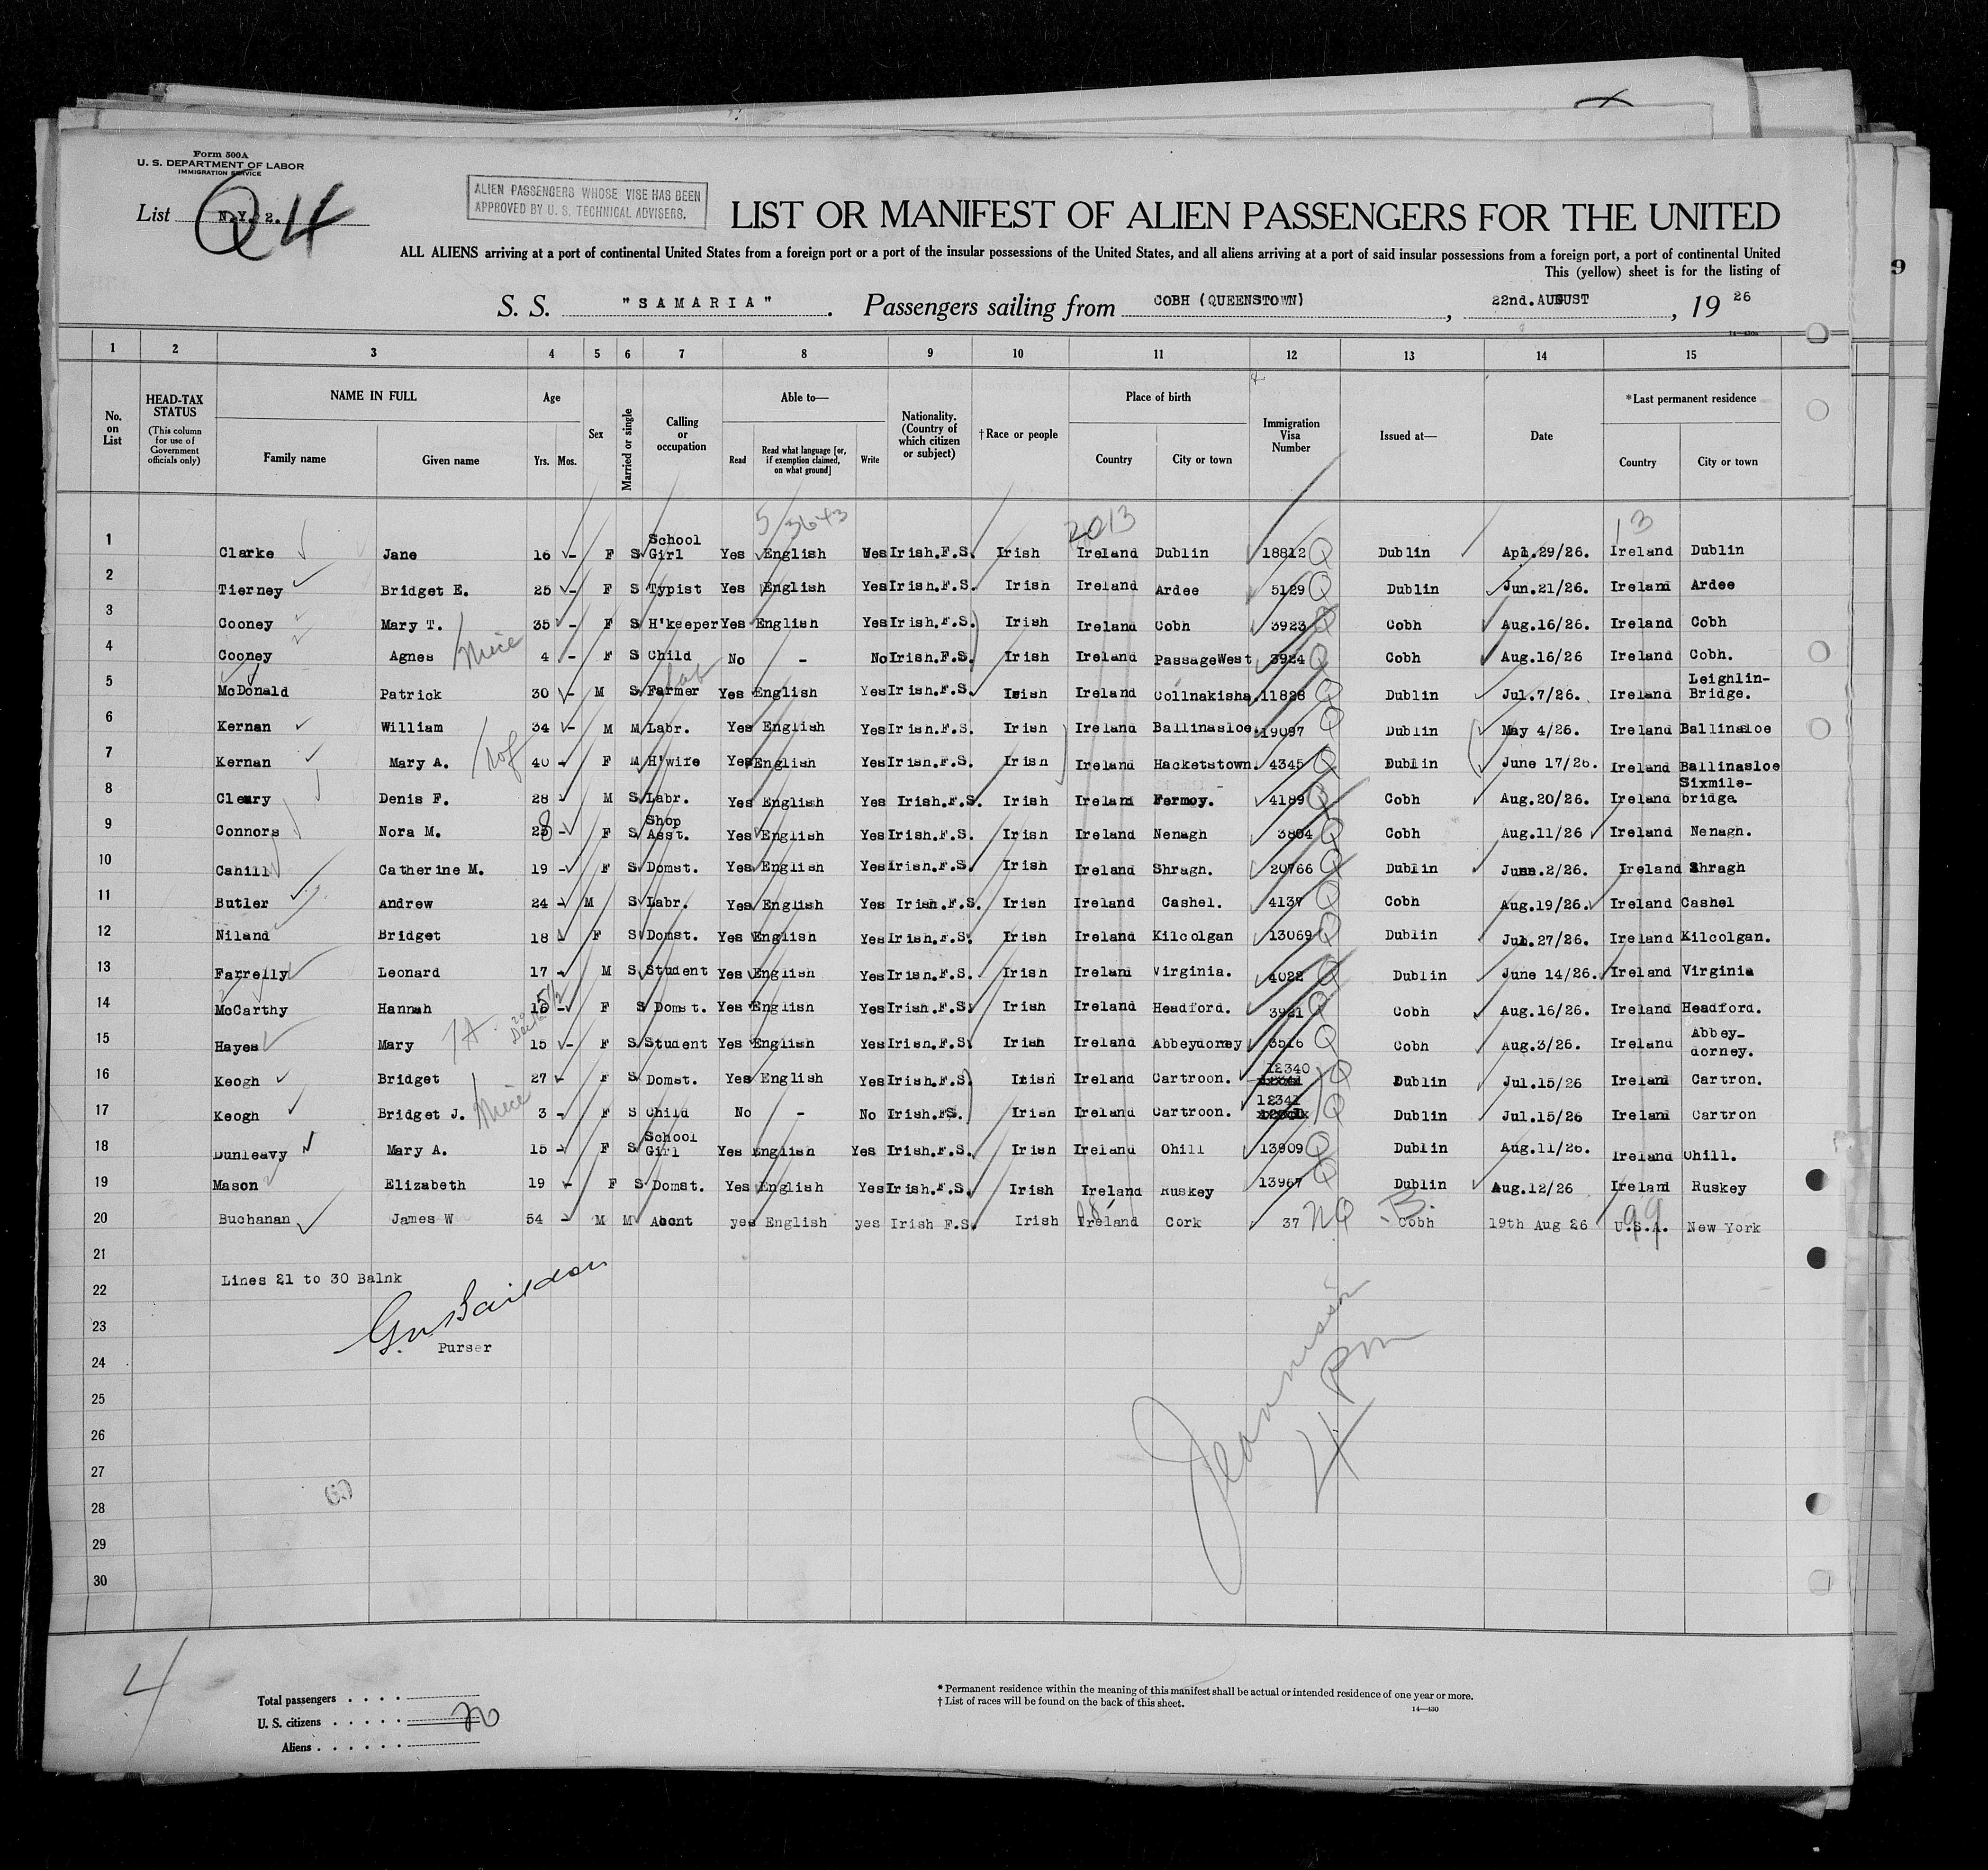 Form 500A
U. S. DEPARTMENT OF LABOR
IMMIGRATION SERVICE
List N.Y. 2. Q4
ALIEN PASSENGERS WHOSE VISE HAS BEEN
APPROVED BY U. S. TECHNICAL ADVISERS.
LIST OR MANIFEST OF ALIEN PASSENGERS FOR THE UNITED
ALL ALIENS arriving at a port of continental United States from a foreign port or a port of the insular possessions of the United States, and all aliens arriving at a port of said insular possessions from a foreign port, a port of continental United
This (yellow) sheet is for the listing of
9
S. S. "SAMARIA". Passengers sailing from COBH (QUEENSTOWN), 22nd. AUGUST, 19 26
1 2 3 4 5 6 7 8 9 10 11 12 13 14 15
No. on List
HEAD-TAX STATUS (This column for use of Government officials only)
NAME IN FULL Family name Given name
Age Yrs. Mos.
Sex
Married or single
Calling or occupation
Able to— Read Read what language [or, if exemption claimed, on what ground] Write
Nationality. (Country of which citizen or subject)
†Race or people
Place of birth Country City or town
Immigration Visa Number
Issued at—
Date
*Last permanent residence Country City or town
5 3643 2013 13
1 Clarke Jane 16 - F S School Girl Yes English Yes Irish.F.S. Irish Ireland Dublin 18812 Q Dublin Apl.29/26. Ireland Dublin
2 Tierney Bridget E. 25 - F S Typist Yes English Yes Irish.F.S. Irish Ireland Ardee 5129 Q Dublin Jun.21/26. Ireland Ardee
3 Cooney Mary T. 35 - F S H'keeper Yes English Yes Irish.F.S. Irish Ireland Cobh 3923 Q Cobh Aug.16/26. Ireland Cobh
4 Cooney Agnes niece 4 - F S Child No - No Irish.F.S. Irish Ireland PassageWest 3924 Q Cobh Aug.16/26 Ireland Cobh.
5 McDonald Patrick 30 - M S Farmer lab Yes English Yes Irish.F.S. Irish Ireland Collnakisha. 11828 Q Dublin Jul.7/26. Ireland Leighlin-Bridge.
6 Kernan William 34 - M M Labr. Yes English Yes Irish.F.S. Irish Ireland Ballinasloe. 19097 Q Dublin May 4/26. Ireland Ballinasloe
7 Kernan Mary A. wf 40 - F M H'wife Yes English Yes Irish.F.S. Irish Ireland Hacketstown. 4345 Q Dublin June 17/26. Ireland Ballinasloe
8 Cleary Denis F. 28 M S Labr. Yes English Yes Irish.F.S. Irish Ireland Fermoy. 4189 Q Cobh Aug.20/26. Ireland Sixmile-bridge.
9 Connors Nora M. 28 - F S Shop Asst. Yes English Yes Irish.F.S. Irish Ireland Nenagh 3804 Q Cobh Aug.11/26 Ireland Nenagh.
10 Cahill Catherine M. 19 - F S Domst. Yes English Yes Irish.F.S. Irish Ireland Shragh. 20766 Q Dublin June.2/26. Ireland Shragh
11 Butler Andrew 24 - M S Labr. Yes English Yes Irish.F.S. Irish Ireland Cashel. 4137 Q Cobh Aug.19/26. Ireland Cashel
12 Niland Bridget 18 - F S Domst. Yes English Yes Irish.F.S. Irish Ireland Kilcolgan 13069 Q Dublin Jul.27/26. Ireland Kilcolgan.
13 Farrelly Leonard 17 - M S Student Yes English Yes Irish.F.S. Irish Ireland Virginia. 4022 Q Dublin June 14/26. Ireland Virginia
14 McCarthy Hannah 16 - F S Domst. Yes English Yes Irish.F.S. Irish Ireland Headford. 3921 Q Cobh Aug.16/26. Ireland Headford.
15 Hayes Mary 15 - F S Student Yes English Yes Irish.F.S. Irish Ireland Abbeydorney 3516 Q Cobh Aug.3/26. Ireland Abbey-dorney.
16 Keogh Bridget 27 F S Domst. Yes English Yes Irish.F.S. Irish Ireland Cartroon. 12340 Q Dublin Jul.15/26 Ireland Cartron.
17 Keogh Bridget J. niece 3 - F S Child No - No Irish.FS. Irish Ireland Cartroon. 12341 Q Dublin Jul.15/26 Ireland Cartron
18 Dunleavy Mary A. 15 - F S School Girl Yes English Yes Irish.F.S. Irish Ireland Ohill 13909 Q Dublin Aug.11/26. Ireland Ohill.
19 Mason Elizabeth 19 - F S Domst. Yes English Yes Irish.F.S. Irish Ireland Ruskey 13967 Q Dublin Aug.12/26 Ireland Ruskey
20 Buchanan James W 54 - M M Acont yes English yes Irish F.S. Irish Ireland Cork 37 NQ B. Cobh 19th Aug 26 U.S.A. 99 New York
21
Lines 21 to 30 Balnk
22
23
Purser
24
25
26
27
28
29
30
4
Total passengers
U. S. citizens
Aliens
20
* Permanent residence within the meaning of this manifest shall be actual or intended residence of one year or more.
† List of races will be found on the back of this sheet.
14—430